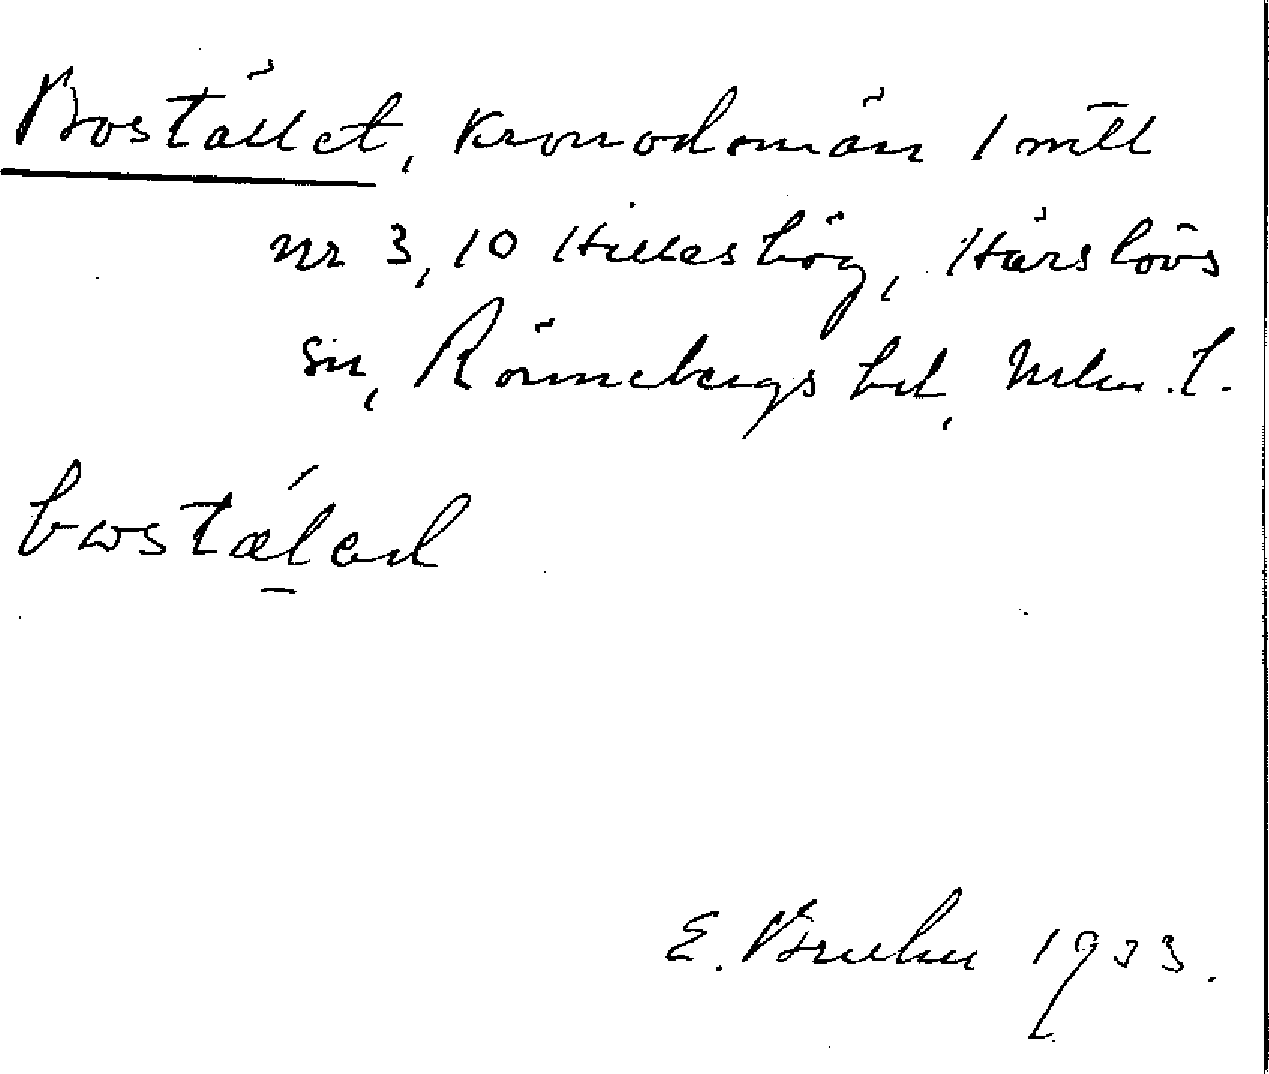 Bostället, kronodomän 1 mtl
nr 3, 10 Hilleshög, Härslövs
sn, Rönnebergs hd, Mlm. l.
bωstǽləd
E. Bruhn 1933.